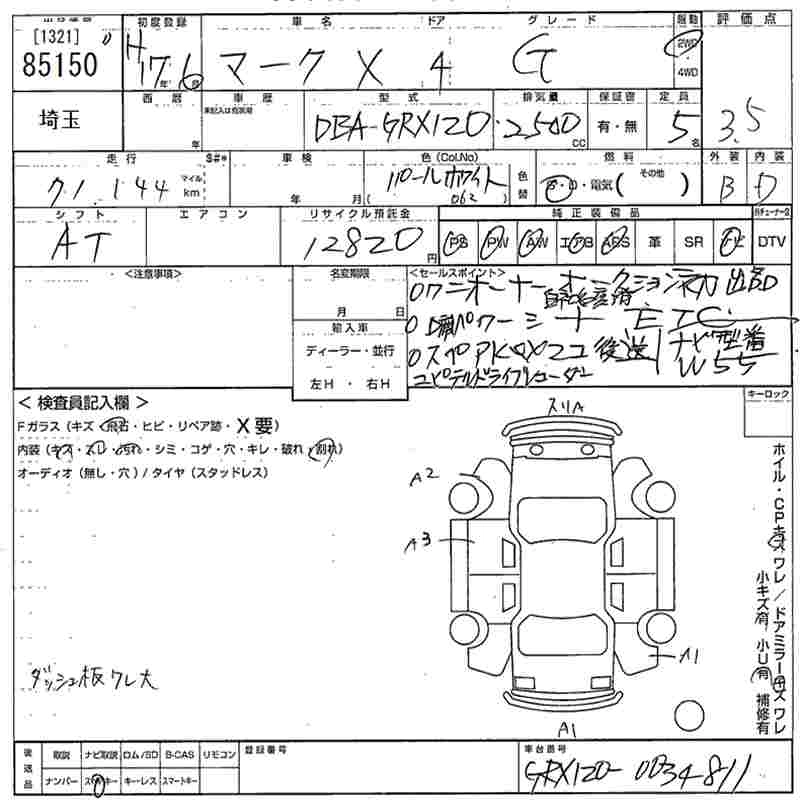 出品番号 初度登録 車名 ドア グレード 駆動 評価点
[1321] 0
85150 H 17年 6月 マークX 4 G 2WD・4WD 3.5
埼玉 西暦 年 車歴 未記入は自家用 型式 DBA-GRX120 排気量 2500CC 保証書 有・無 定員 5名
走行 S#* 車検 色(Col,No) 燃料 外装 内装
71,144 マイル km 年 月 パールホワイト (062) 色替 G・D・電気( その他 ) B D
シフト エアコン リサイクル預託金 純正装備品
AT 12820円 PS PW AW エアB ABS 革 SR ナビ DTV
<注意事項> 名変期限 <セールスポイント>
月 日
輸入車
ディーラー・並行
左H・右H
○ワンオーナー オークション初出品
自社名変済
パワーシート ETC ナビ型番
W55
後送
コムテルドライブレコーダー
<検査員記入欄>
Fガラス(キズ・飛石・ヒビ・リペア跡・X要)
内装(キズ・スレ・汚れ・シミ・コゲ・穴・キレ・破れ・割れ)
オーディオ(無し・穴)/タイヤ(スタッドレス)
キーロック
スリA
A2
A3
A1
A1
ダッシュ板ワレ大
ホイル・CPキズ ワレ/ドアミラーキズ ワレ
小キズ有 小U有 補修有
後送品 取説 ナビ取説 ロム/SD B-CAS リモコン 登録番号 車台番号
ナンバー スペアキー キーレス スマートキー GRX120-0034811